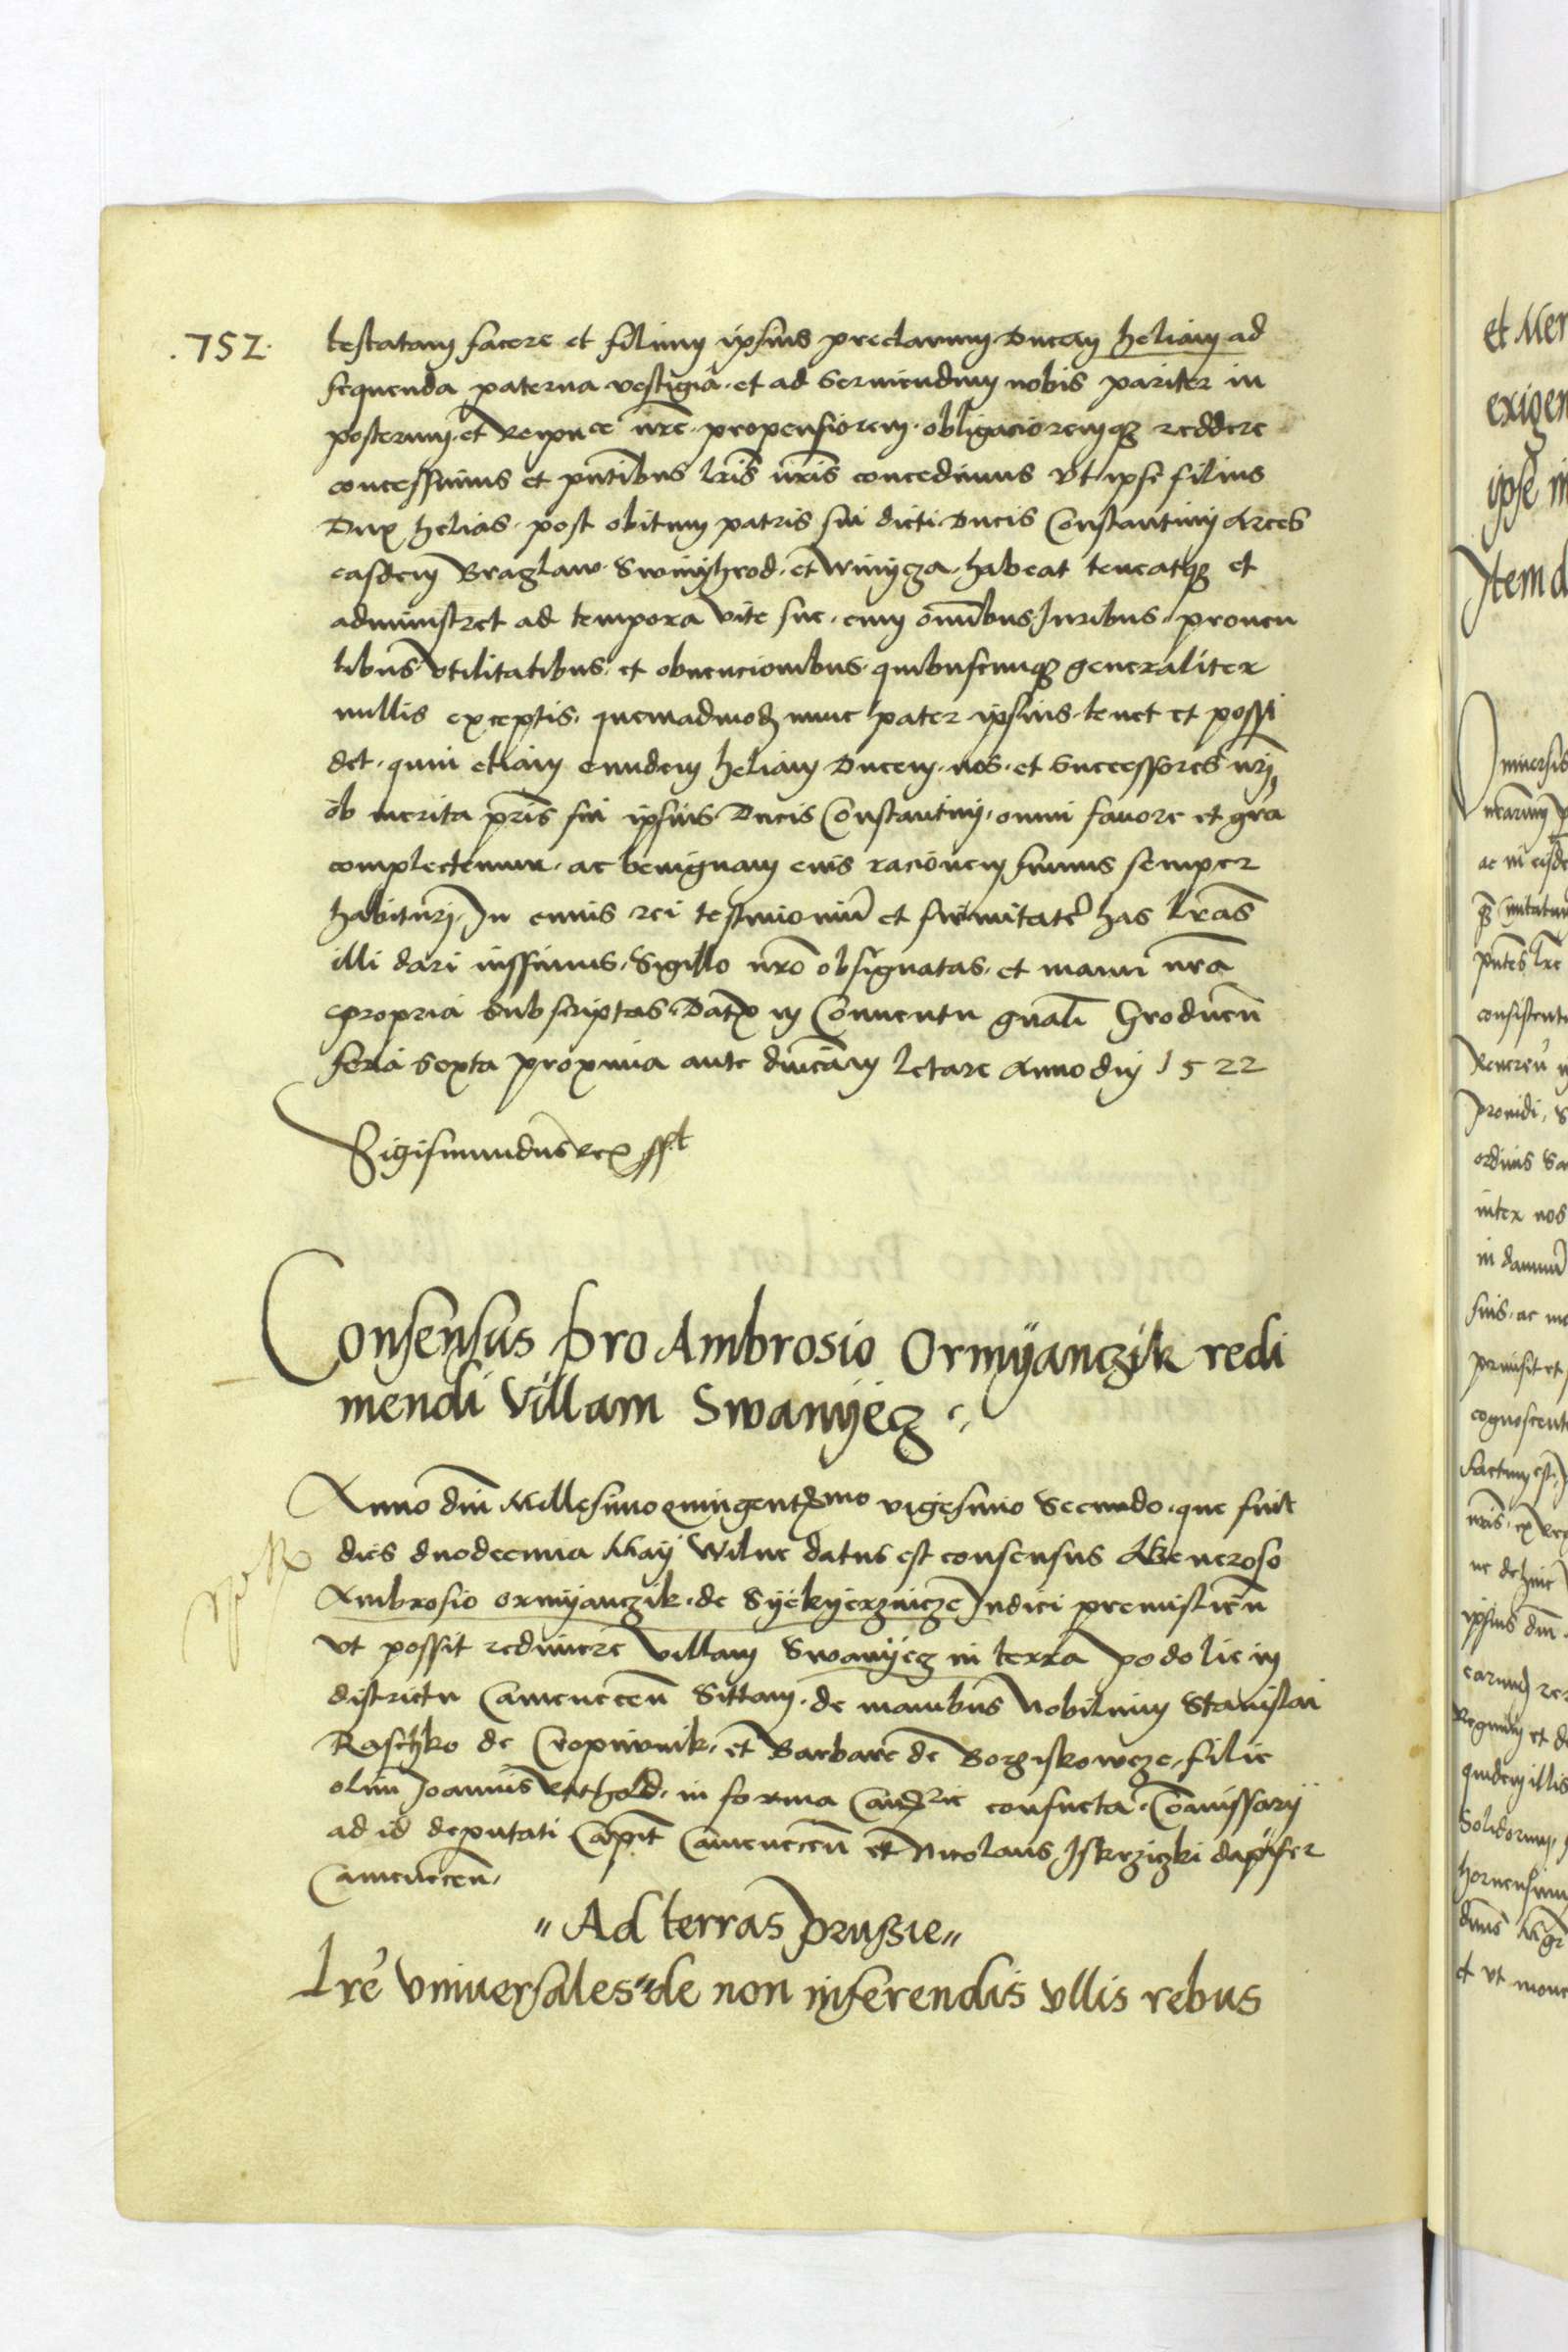 .752.
testatam facere et filium ipsius preclarum Ducem heliam ad
sequenda paterna vestigia. et ad seruiendum nobis pariter in
posterum. et Reipuce nre. propensiorem. obligacioremq3 reddere
concessimus et pntibus lris nris concedimus Vt ipse filius
Dux helias. post obitum patris sui dicti Ducis Constantini Arces
easdem Braglaw. Swinyhrod. et Winycza. habeat teneatq3 et
administret ad tempora vite sue. cum omibus Juribus. prouen
tibus Vtilitatibus. et obuencionibus. quibuscunq3 generaliter
nullis exceptis. quemadmod3 nunc pater ipsius. tenet et possi
det. quin etiam eundem heliam Ducem. nos. et Successores nri
ob merita pris sui ipsius Ducis Constantini. omni fauore et gra
complectemur. ac benignam eius racionem sumus semper
habituri. In cuius rei testimoniu et firmitate has lras
illi dari iussimus. Sigillo nro obsignatas. et manu nra
propria Subscriptas. Dat in Conuentu gnali Grodnen
feria Sexta proxima ante dnicam letare Anno dnj 1522
Sigismundus Rex sst
Consensus pro Ambrosio Ormyanczik redi
mendi Villam Swanyecz
Anno dni Millesimo quingentmo vigesimo Secundo. que fuit
dies duodecima May Wilne datus est consensus Generoso
Ambrosio ormyanczik. de Syekyerznicze Judici premislien
vt possit redimere villam Swanyecz in terra podolie in
districtu Camenecen Sittam. de manibus Nobilium Stanislai
Raschko de Cropiwnik. et Barbare de Borziskowcze. filie
olim Joannis in forma consueta. Comissarij
ad id deputati Capit Camenecen et Nicolaus Jskrziczki dapifer
Camenecen.
"Ad terras Prussie"
Lre Vniuersales de non inferendis vllis rebus